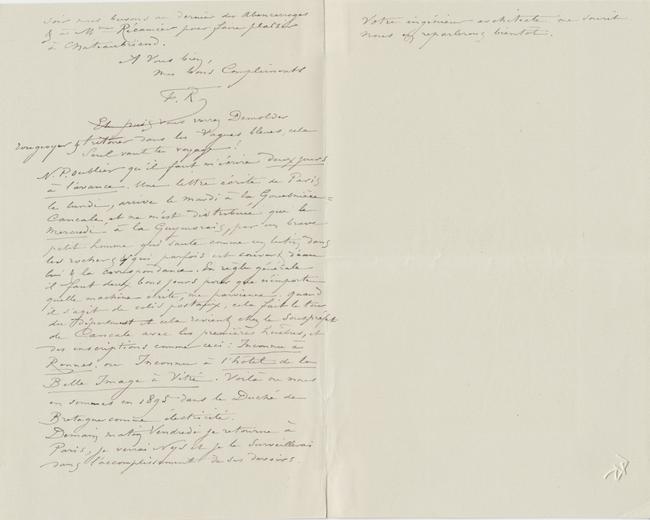 soir nous lusons au dernier des Abencerrages
& à Mme Récamier pour faire plaisir
à Chateaubriand.
A Vous bien,
mes bons Compliments
F. R.
Et puis vous verrez Demolder
dans les Vagues bleues, cela
seul vaut le voyage!
N. P. oublier qu'il faut m'écrire deux jours
à l'avance. Une lettre écrite de Paris
le lundi, arrive le mardi à la Gouesnière-
Cancale, et ne m'est distribuée que le
Mercredi à la Guymorais, par un brave
petit homme qui saute comme un lutin dans
les rochers & qui parfois est couvert d'eau
lui & la correspondance. En règle générale
il faut deux bons jours pour que n'importe
quelle machine écrite, me parvienne. Quand
il s'agit de colis postaux, cela fait le tour
du département et cela revient chez le Sous-préfet
de Cancale avec les premières huîtres, et
des inscriptions comme ceci: Inconnu à
Rennes. ou Inconnu à l'hôtel de la
Belle Image à Vitré. Voilà où nous
en sommes en 1895 dans le Duché de
Bretagne comme électricité.
Demain matin Vendredi je retourne à
Paris, je verrai Nys et je le surveillerai
dans l'accomplissement de ses devoirs.
Votre ingénieur architecte me sourit
nous en reparlerons bientôt.